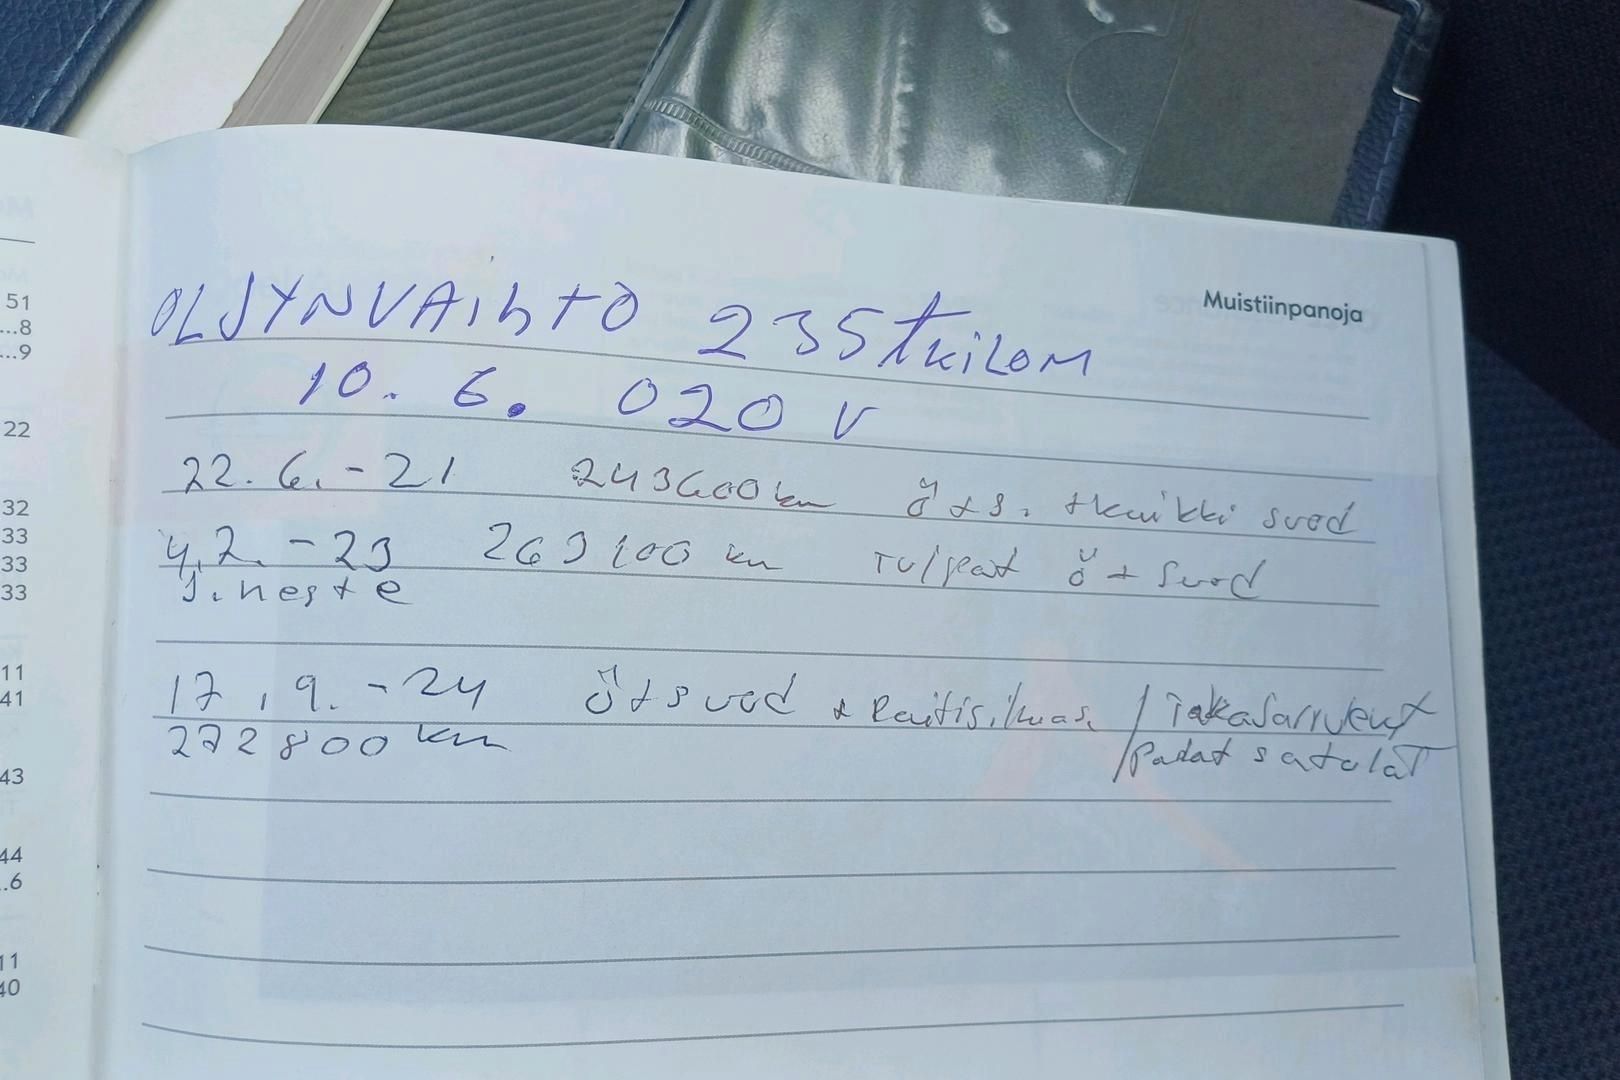 Muistiinpanoja
OLJYNVAihtO 235tkiLOM
10. 6. 020 V
22. 6. -21 243600 km ö+s. +kaikki suod
4.2. -23 263100 km Tulpat ö+suod
J.neste
17.9. -24 ö+suod + Raitisilmas. / Takasarvjent
272800 km / Palat satulat
51
...8
...9
22
32
33
33
33
11
41
43
44
..6
11
40